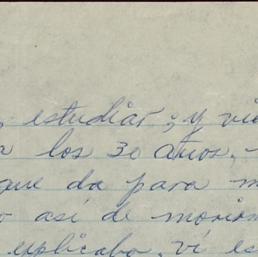 estudiar; y vi
los 30 años, -
que da para m
o así de
explicaba, vi es